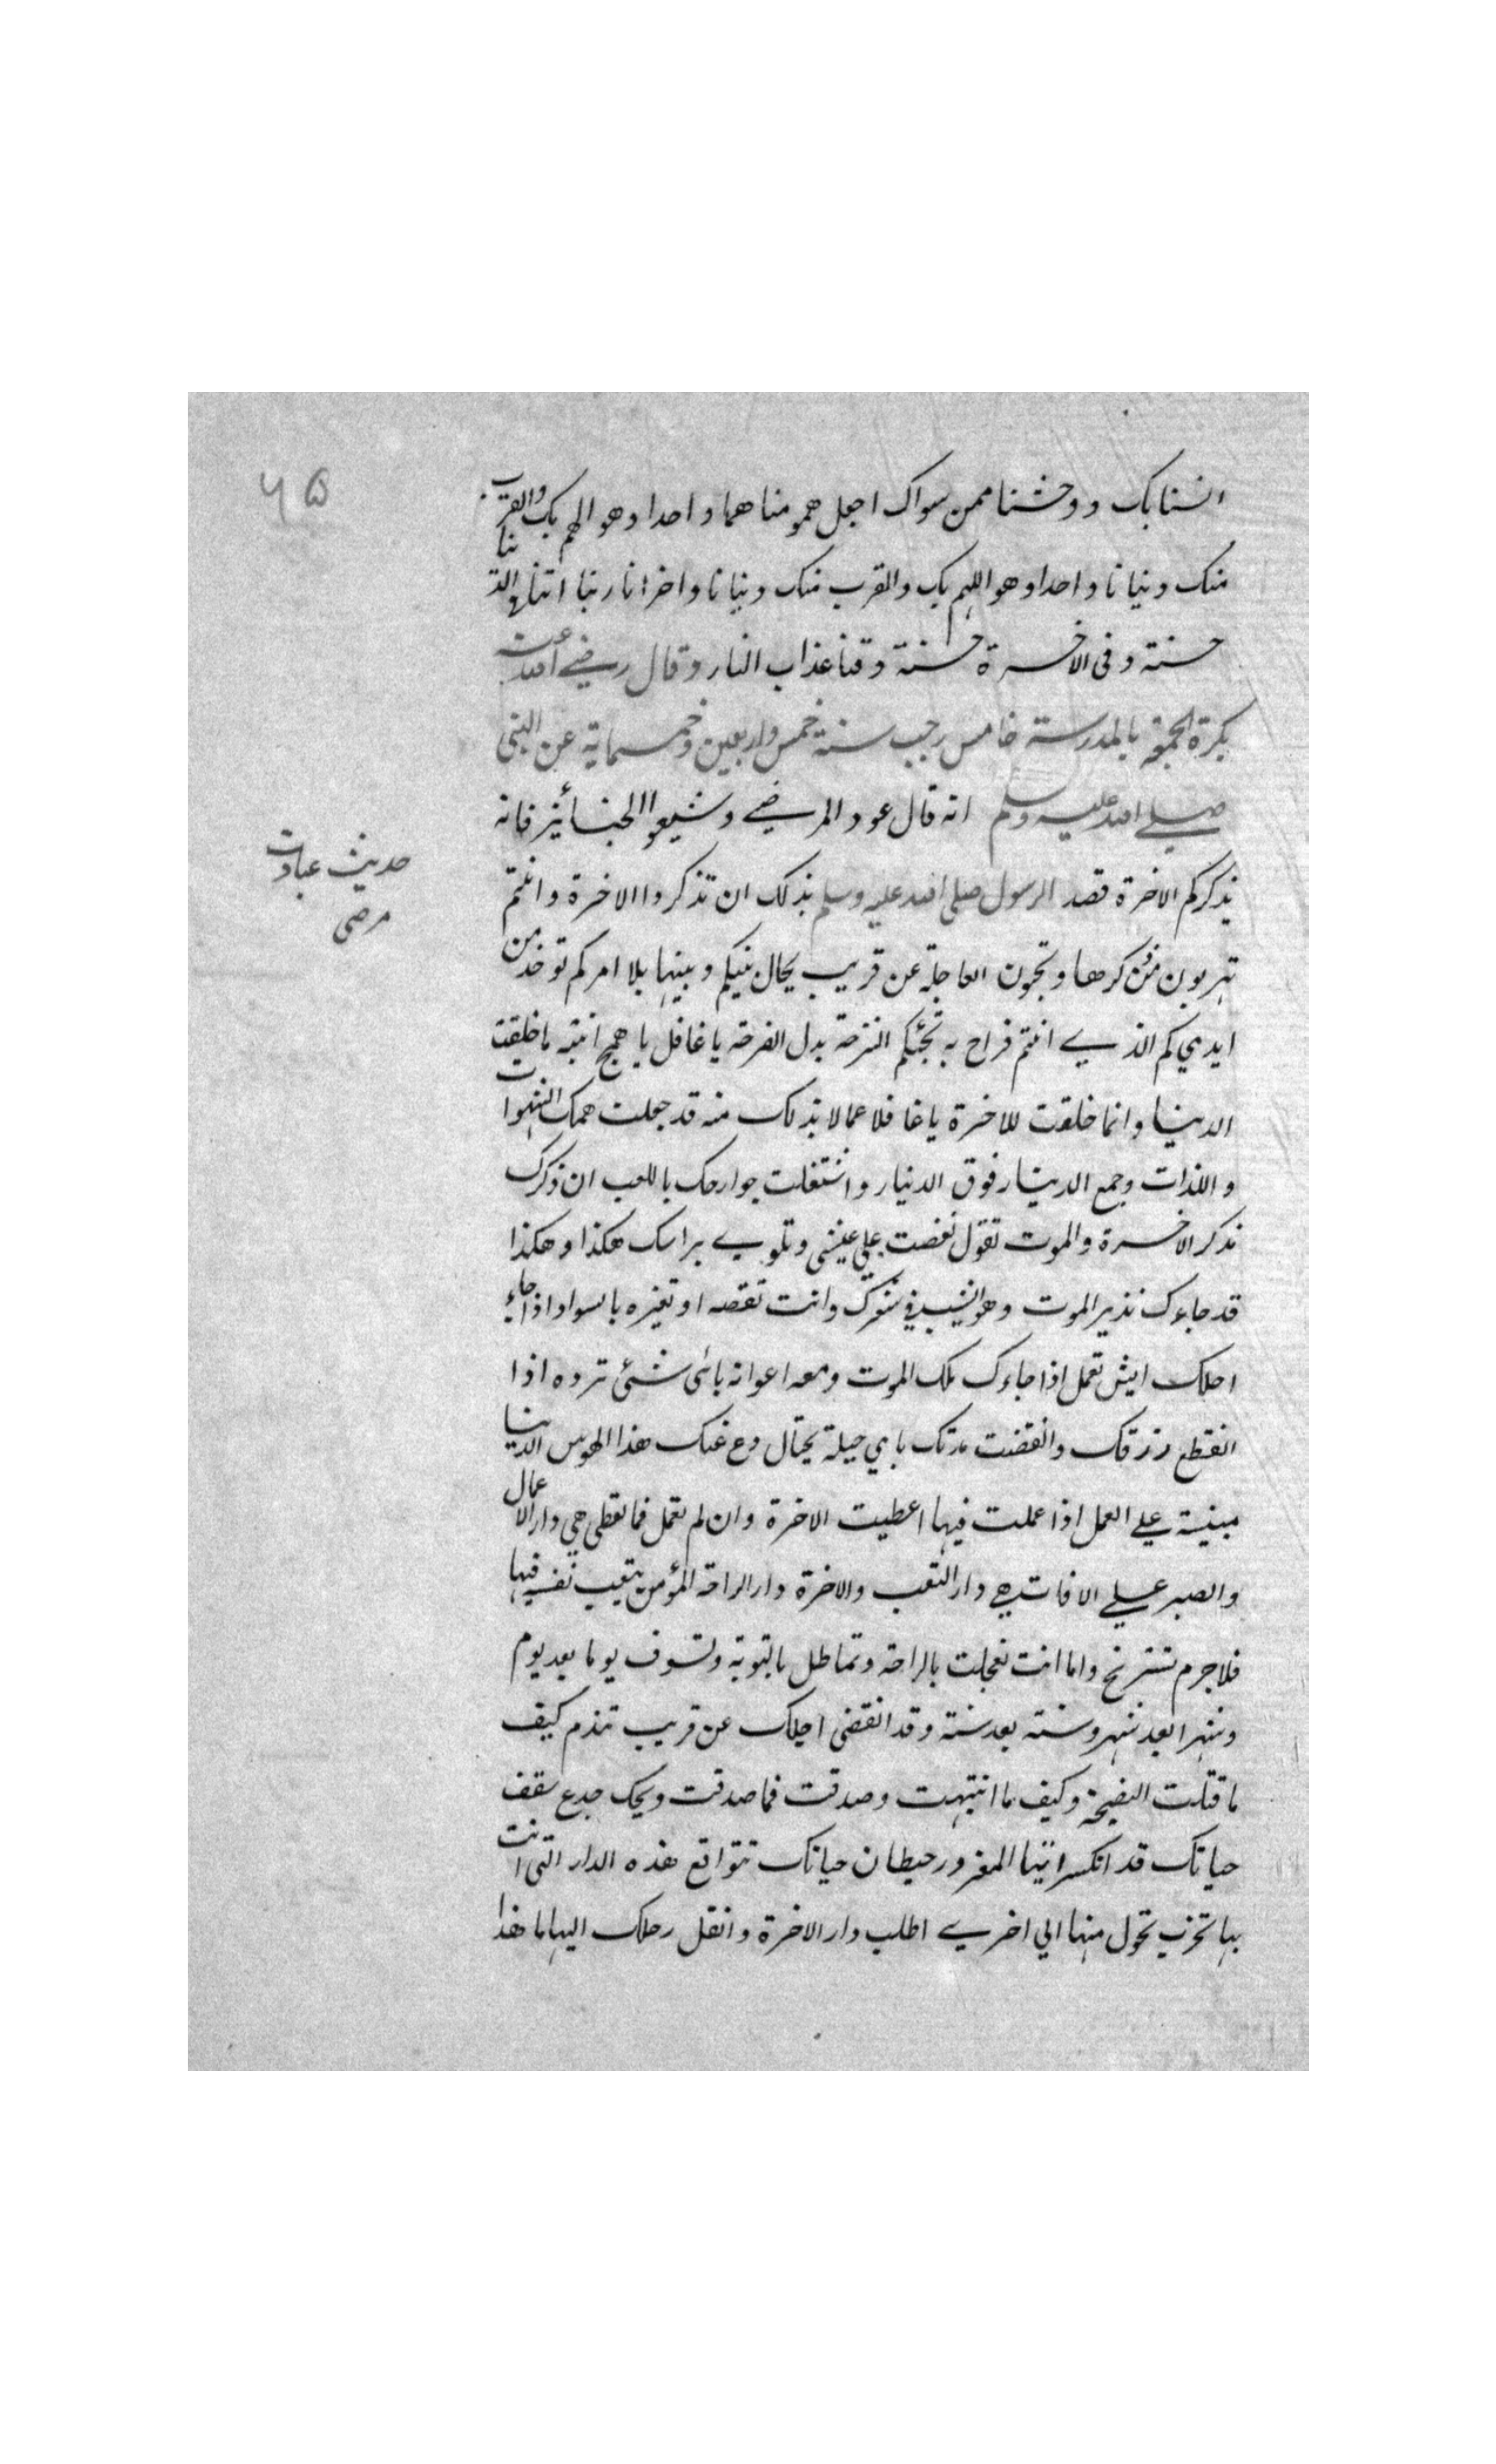 ۶۵
انسنا بك ووحشنا ممن سواك اجعل همومنا هما واحدا وهو الهم بك والقرب
منك دنيانا واحدا وهو اللهم بك والقرب منك دنيانا واخرانا ربنا اتنا فى الدنيا
حسنة وفى الاخرة حسنة وقنا عذاب النار وقال رضي الله عنه
بكرة الجمعة بالمدرسة خامس رجب سنة خمس واربعين وخمسماية عن النبي
صلي الله عليه وسلم انه قال عود والمرضي وشيعوا الجنائز فانه
يذكركم الاخرة قصد الرسول صلى الله عليه وسلم بذلك ان تذكروا الاخرة وانتم
حديث عيادت
مرضى
تهربون من ذكرها وتحبون العاجلة عن قريب يحال بينكم وبينها بلا امركم توخذ من
ايديكم الذي انتم فراح به تجئكم الترحة بدل الفرحة يا غافل يا همج انتبه ما خلقت
الدنيا وانما خلقت للاخرة يا غافلا عما لا بد لك منه قد جعلت همك الشهوات
واللذات وجمع الدينار فوق الدنيار واشتغلت جوارحك باللعب ان ذكرك
تذكر الاخرة والموت تقول نغصت علي عيشى وتلوي براسك هكذا وهكذا
قد جاءك نذير الموت وهو الشيب في شعرك وانت تقصه او تغيره بالسواد اذا جاء
اجلك ايش تعمل اذا جاءك ملك الموت ومعه اعوانه باى شئى ترده اذا
انقطع رزقك وانقضت مدتك باي حيلة يحتال دع عنك هذا الهوس الدنيا
مبنية علي العمل اذا عملت فيها اعطيت الاخرة وان لم تعمل فما تعطي هي دار الاعمال
والصبر علي الافات هي دار التعب والاخرة دار الراحة المؤمن يتعب نفسه فيها
فلا جرم تستريح واما انت تعجلت بالراحة وتماطل بالتوبة وتسوف يوما بعد يوم
وشهرا بعد شهر وسنة بعد سنة وقد انقضى اجلك عن قريب تندم كيف
ما قبلت النصيحة وكيف ما انتبهت وصدقت فما صدقت ويحك جدع سقف
حياتك قد انكسر ايها المغرور حيطان حياتك تتواقع هذه الدار التى انت
بها تخرب تحول منها الي اخري اطلب دار الاخرة وانقل رحلك اليها ما هذا